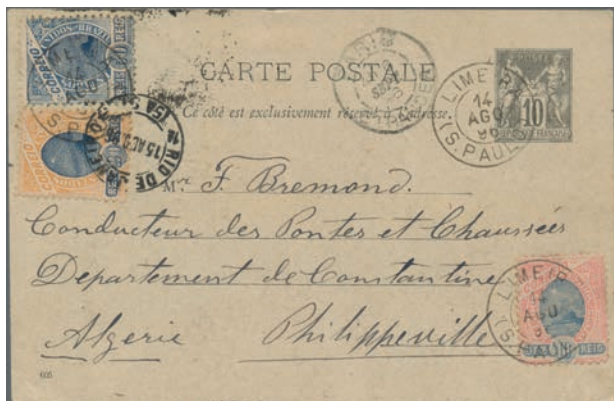 CARTE POSTALE
Ce côté est exclusivement réservé à l'adresse.
10
LIMEIRA
14
AGO
(S. PAULO)
RIO DE
15 AGO
Mr F. Bremond.
Conducteur des Pontes et Chaussées
Departement de Constantine
Algerie Philippeville
LIMEIR
14
AGO
(S. PAUL
CORREIO
605